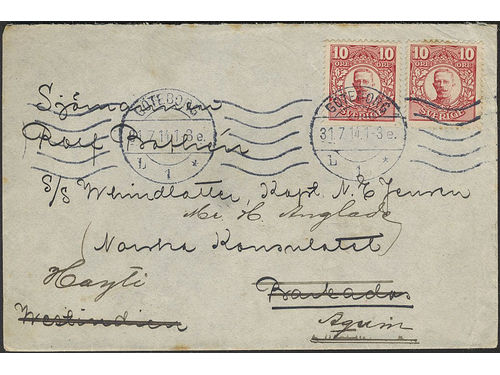 10 10
ÖRE ÖRE ÖRE ÖRE
SVERIGE SVERIGE
GÖTEBORG GÖTEBORG
31.7.14.1-3 e. 31.7.14.1-3 e.
L 1 * L 1 *
Sjömannen
Rolf
S/S Whindlatter, Kapt. N. C. Jensen
Mr. H. Anglade
(Norska Konsulatet)
Hayti
Barbados
Westindien
Aquin